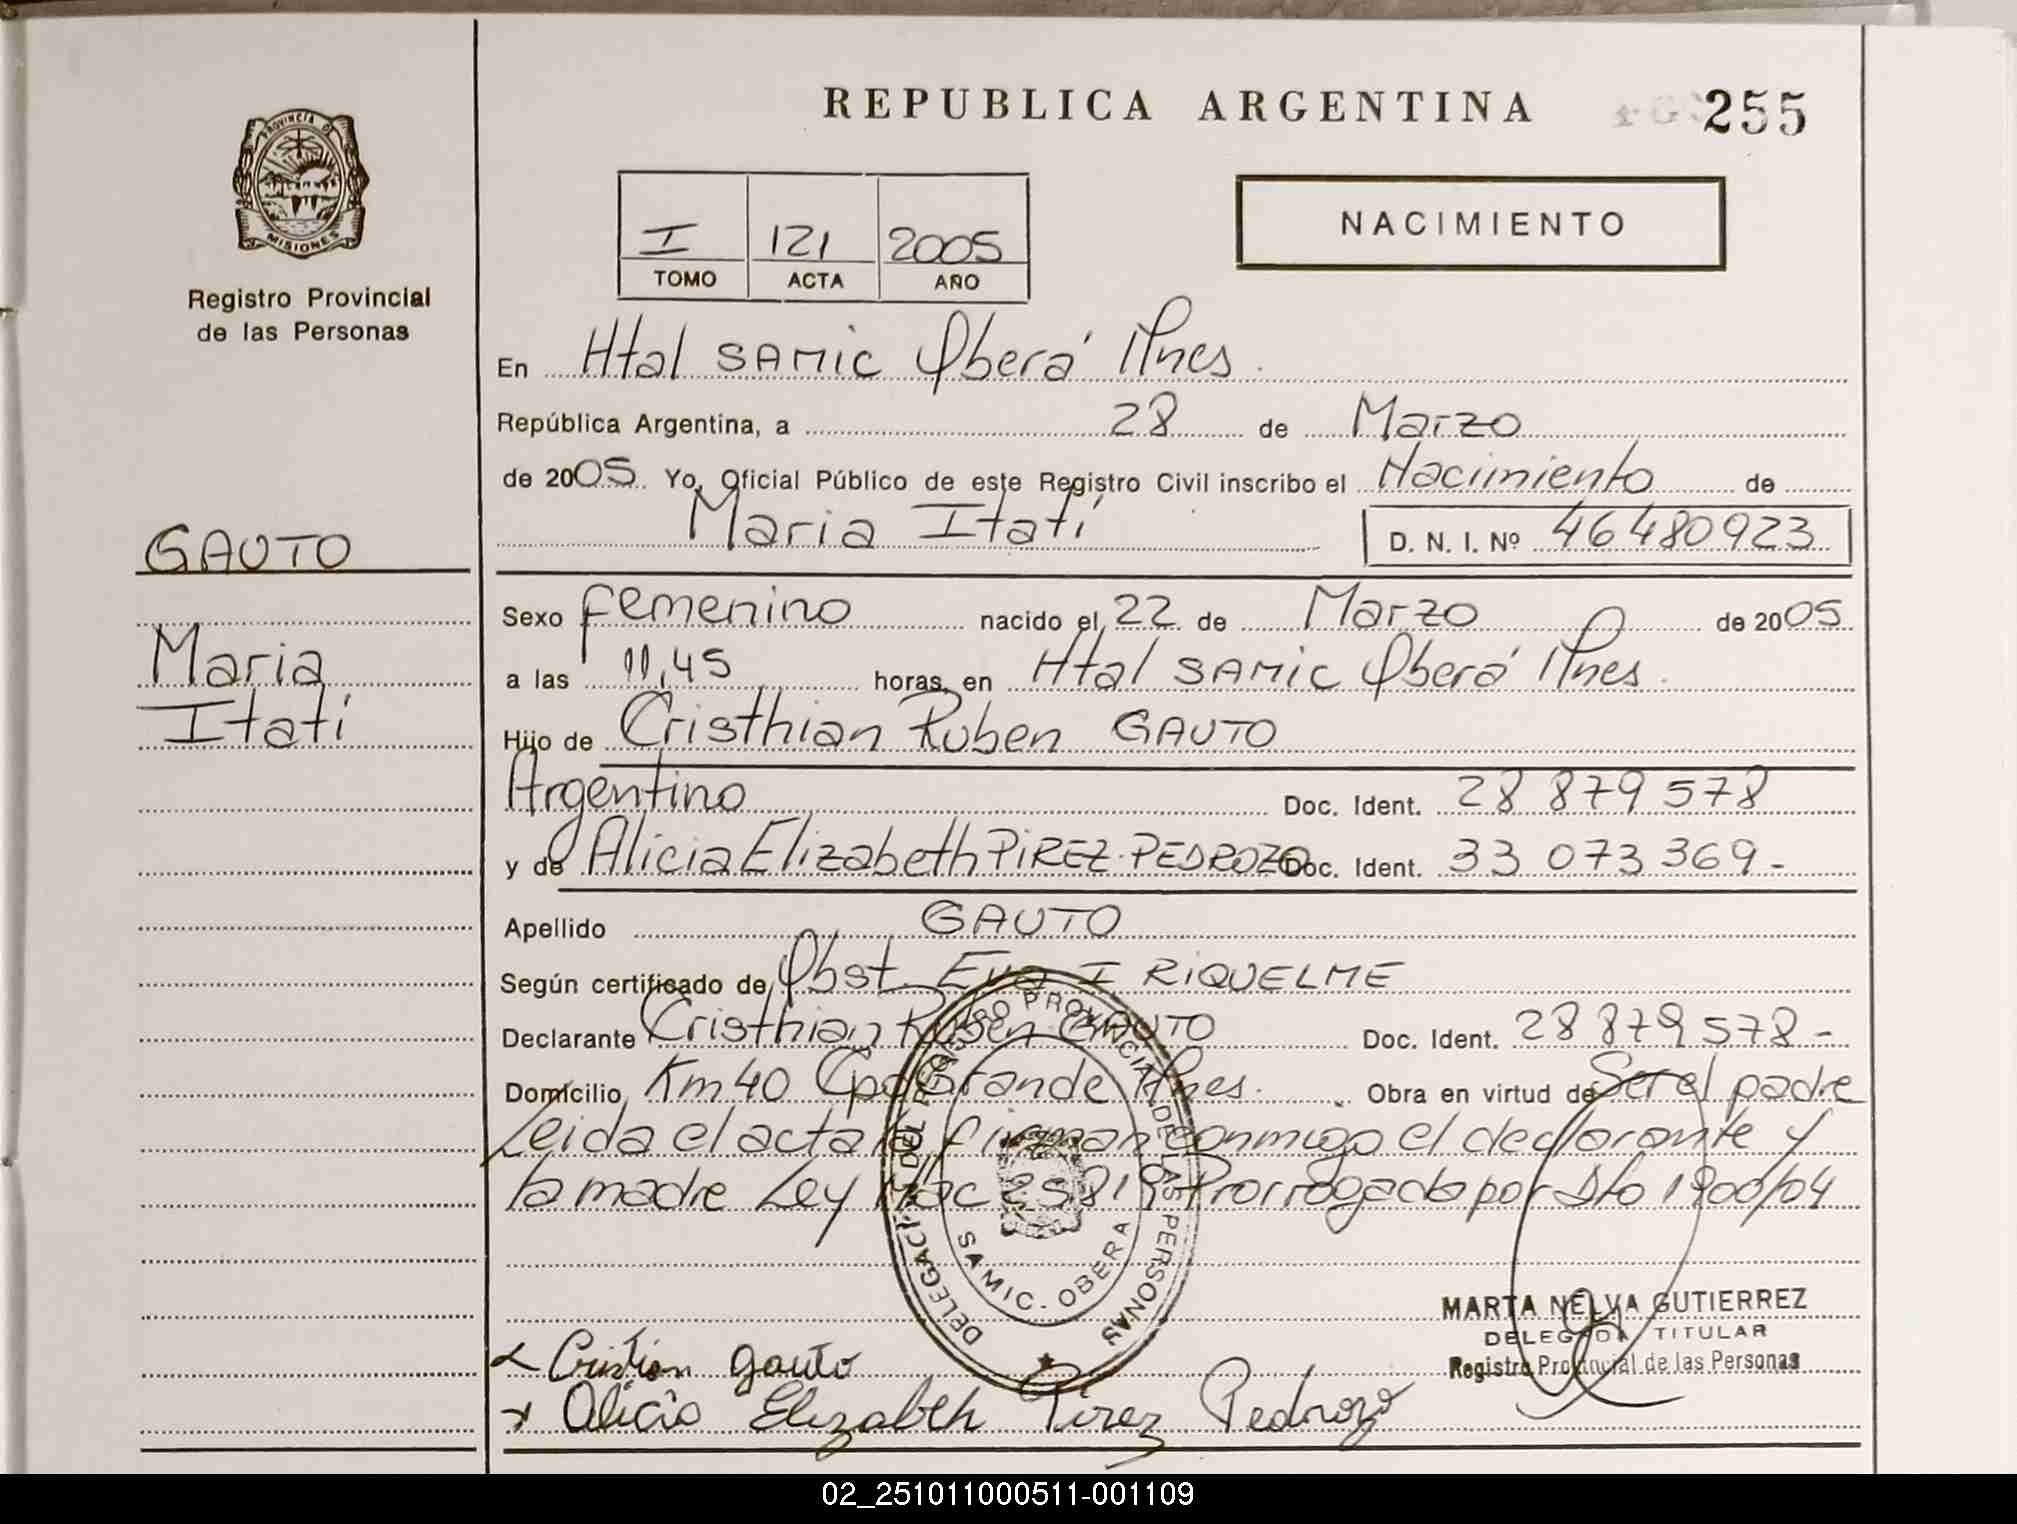 REPUBLICA ARGENTINA 255
PROVINCIA DE MISIONES
Registro Provincial
de las Personas
I 121 2005
TOMO ACTA AÑO
NACIMIENTO
En Htal SAMIC Oberá Mnes.
República Argentina, a 28 de Marzo
de 2005. Yo, Oficial Público de este Registro Civil inscribo el Nacimiento de
Maria Itatí D. N. I. Nº 46480923
GAUTO
Maria
Itatí
Sexo femenino nacido el 22 de Marzo de 2005
a las 11,45 horas, en Htal SAMIC Oberá Mnes.
Hijo de Cristhian Ruben GAUTO
Argentino Doc. Ident. 28 879 578
y de Alicia Elizabeth PIREZ PEDROZO Doc. Ident. 33 073 369-
Apellido GAUTO
Según certificado de Obst. Eva I RIQUELME
Declarante Cristhian Ruben GAUTO Doc. Ident. 28 879 578-
Domicilio Km 40 Cpo Grande Mnes. Obra en virtud de Ser el padre
Leida el acta la firman conmigo el declarante y
la madre Ley Nac 25819 Prorrogada por Dto 1900/04
DELEGACION DEL REGISTRO PROVINCIAL DE LAS PERSONAS
SAMIC. OBERA
MARTA NELVA GUTIERREZ
DELEGADA TITULAR
Registro Provincial de las Personas
Cristian gauto
Alicia Elizabeth Pirez Pedrozo
02_251011000511-001109